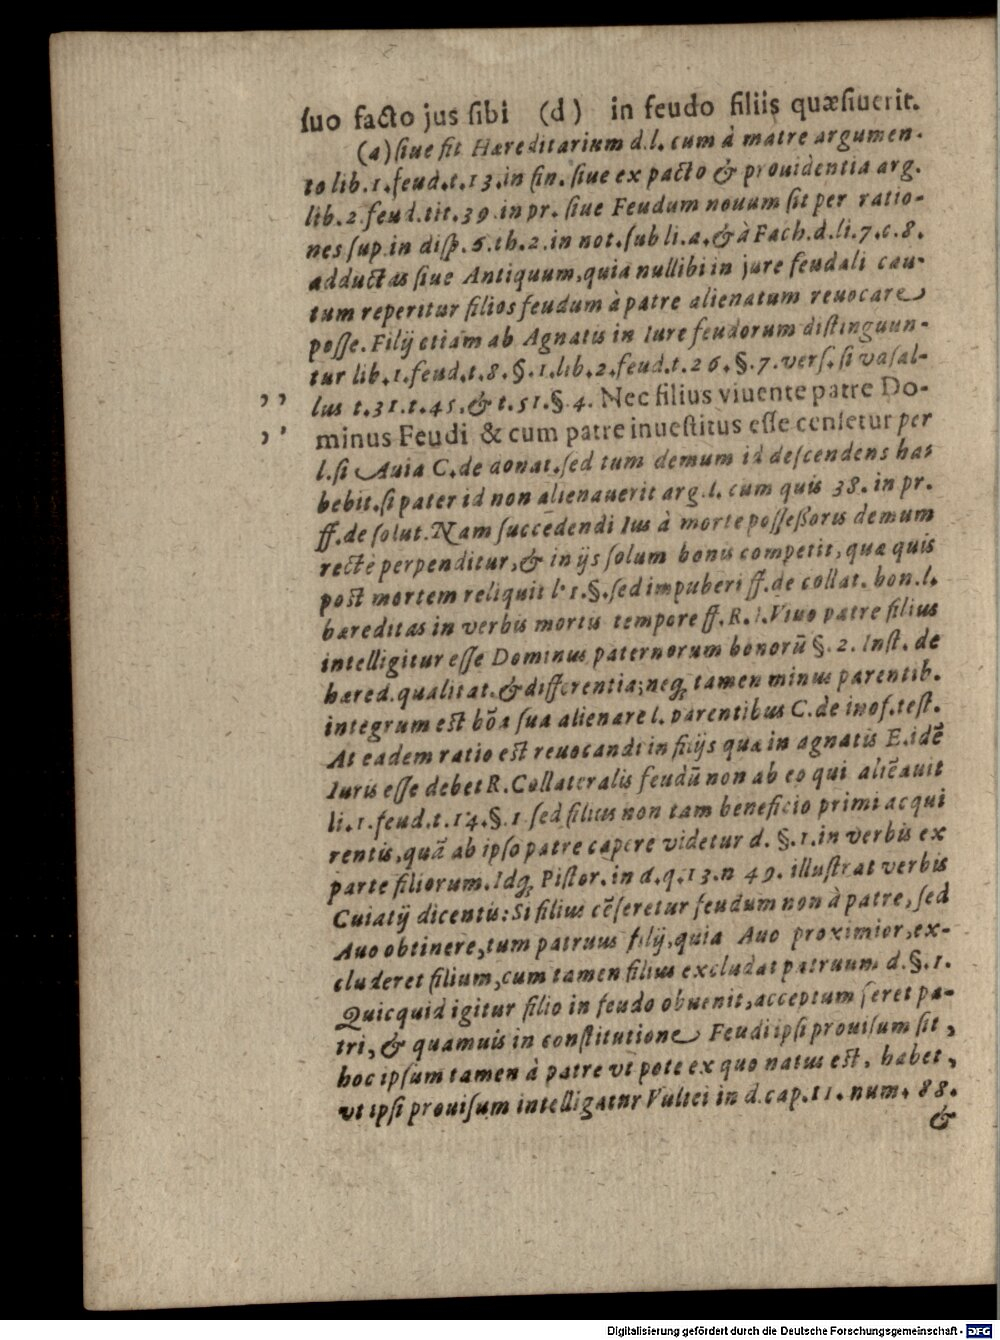 ſuo facto jus ſibi (d) in feudo filiis quæſiuerit.
(a) ſiue ſit Hæreditarium d.l. cum à matre argumen-
to lib.1.feud.t.13.in fin. ſiue ex pacto & prouidentia arg.
lib.2.feud.tit.39.in pr. ſiue Feudum nouum ſit per ratio-
nes ſup.in diſp.6.th.2.in not.ſub li.a.& à Fach.d.li.7.c.8.
adductas ſiue Antiquum, quia nullibi in jure feudali cau-
tum reperitur filios feudum à patre alienatum reuocare
poſſe. Filij etiam ab Agnatis in Iure feudorum diſtinguun-
tur lib.1.feud.t.8.§.1.lib.2.feud.t.26.§.7.verſ.ſi vaſal-
,, lus t.31.t.45.& t.51.§.4. Nec filius viuente patre Do-
,, minus Feudi & cum patre inueſtitus eſſe cenſetur per
l.ſi Auia C.de donat.ſed tum demum id deſcendens has
bebit.ſi pater id non alienauerit arg.l. cum quis 38. in pr.
ff.de ſolut. Nam ſuccedendi Ius à morte poſſeſſoris demum
rectè perpenditur, & in ijs ſolum bonis competit, quæ quis
poſt mortem reliquit l.1.§.ſed impuberi ff.de collat. bon.l.
hæreditas in verbis mortis tempore ff.R.I.Viuo patre filius
intelligitur eſſe Dominus paternorum bonorū §.2. Inſt. de
hæred.qualitat.& differentia; neq; tamen minus parentib.
integrum eſt bōa ſua alienare l. parentibus C.de inof.teſt.
At eadem ratio eſt reuocandi in filijs quæ in agnatis E.idē
Iuris eſſe debet R.Collateralis feudū non ab eo qui aliēauit
li.1.feud.t.14.§.1 ſed filius non tam beneficio primi acqui
rentis, quā ab ipſo patre capere videtur d. §.1.in verbis ex
parte filiorum. Idq; Piſtor.in d.q.13.n 49. illuſtrat verbis
Cuiatij dicentis: Si filius cēſeretur feudum non à patre, ſed
Auo obtinere, tum patruus filij, quia Auo proximior, ex-
cluderet filium, cum tamen filius excludat patruum d.§.1.
Quicquid igitur filio in feudo obuenit, acceptum feret pa-
tri, & quamuis in conſtitutione Feudi ipſi prouiſum ſit,
hoc ipſum tamen à patre vt pote ex quo natus eſt, habet,
vt ipſi prouiſum intelligatur Vultei in d.cap.11. num. 88.
&
Digitalisierung gefördert durch die Deutsche Forschungsgemeinschaft - DFG